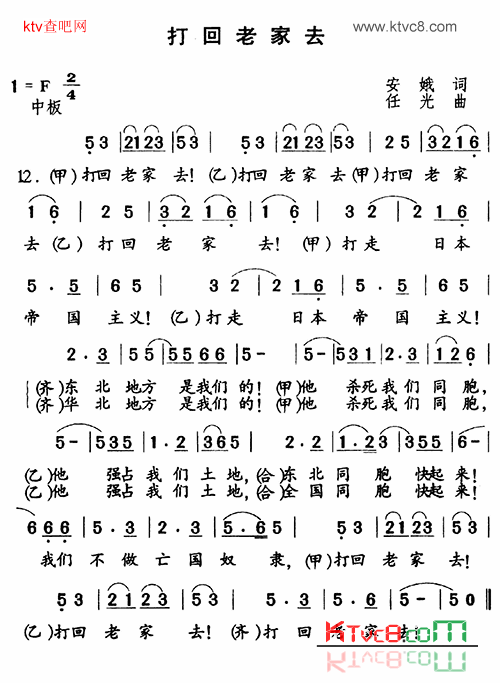 ktv查吧网
www.ktvc8.com
打回老家去
1=F 2/4
中板
安娥 词
任光 曲
5 3 | 2123 | 5 3 | 5 3 | 2123 | 5 3 | 2 5 | 3 2 1 6 |
12.(甲)打回 老家 去!(乙)打回 老家 去(甲)打回 老家
1 6 | 2 5 | 3 2 1 6 | 1 6 | 3 2 | 2 1 6 |
去(乙)打回 老家 去!(甲)打走 日本
5. 5 | 6 5 | 3 2 | 2 1 6 | 5. 5 | 6 5 |
帝国 主义!(乙)打走 日本 帝国 主义!
2. 3 | 55 5 | 5566 | 5- | 5- | 5351 | 2. 3 | 1 2 6 |
(齐)东北 地方 是我们的!(甲)他 杀死我们同胞,
(齐)华北 地方 是我们的!(甲)他 杀死我们同胞,
5- | 535 | 1. 2 | 365 | 2. 3 | 1. 23 | 355 | 6- |
(乙)他 强占我们土地,(合)东北同胞 快起来!
(乙)他 强占我们土地,(合)全国同胞 快起来!
666 | 5. 3 | 2. 3 | 5. 6 5 | 5 3 | 2123 | 5 3 |
我们 不做亡国奴 隶,(甲)打回 老家 去!
5 3 | 2123 | 5 3 | 5. 3 | 5. 6 | 5- | 5 0 ‖
(乙)打回 老家 去!(齐)打回 老家 去!
KTVC8.com